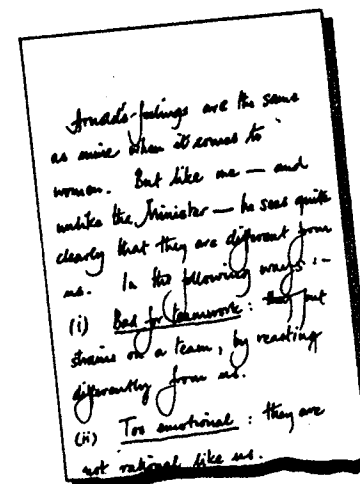 Arnold's feelings are the same
as mine when it comes to
women. But like me — and
unlike the Minister — he sees quite
clearly that they are different from
us. In the following ways :-
(i) Bad for teamwork : they put
strains on a team, by reacting
differently from us.
(ii) Too emotional : they are
not rational like us.